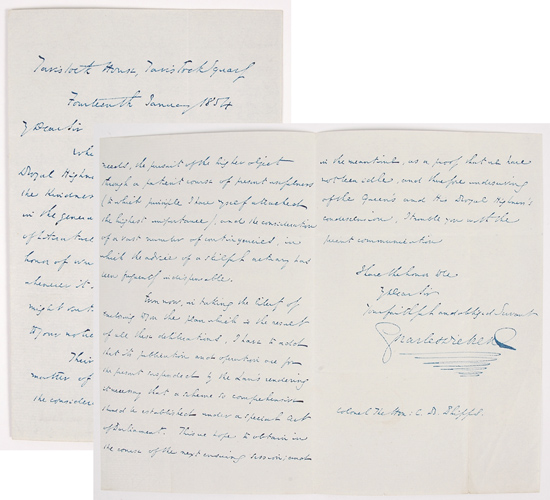 Tavistock House, Tavistock Square
Fourteenth January 1854
My Dear Sir
Whe
Royal Highne
the kindness
in the genera
of Literature
honor of wri
whenever it
might suit
to your notice
Their
matter of
the considera
needed, the pursuit of the higher object
through a patient course of present usefulness
(to which principle I have myself attached
the highest importance), and the consideration
of a vast number of contingencies, in
which the advice of a skilful actuary has
been
indispensable.
Even now, in taking the liberty of
enclosing to you the plan which is the result
of all these deliberations, I have to add
that its publication and operation are for
the present suspended by the Law's rendering
it necessary that a scheme so comprehensive
should be established under a special Act
of Parliament. This we hope to obtain in
the course of the next ensuing session; and
in the meantime, as a proof that we have
not been idle, and therefore undeserving
of the Queen's and the Royal Highness's
condescension, I trouble you with the
present communication
I have the honor to be
My Dear Sir
Your faithful and obliged Servant
Charles Dickens
Colonel The Hon: C. B. Phipps.